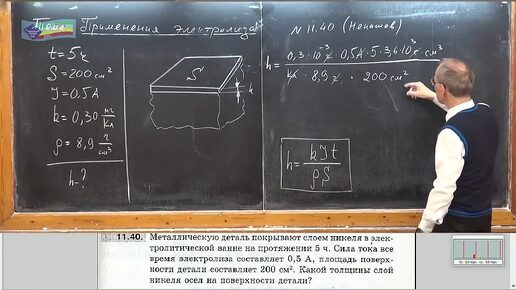 Тема: Применения электролиза
N 11.40 (Ненашев)
t = 5ч
S = 200 см²
J = 0.5 А
k = 0,30 мг/Кл
ρ = 8,9 г/см³
h - ?
S
h
h = 0,3 · 10⁻³ · 0,5А · 5 · 3,6 · 10³ с см³ / Кл · 8,9 г · 200 см²
h = kJt / ρS
11.40. Металлическую деталь покрывают слоем никеля в элек-
тролитической ванне на протяжении 5 ч. Сила тока все
время электролиза составляет 0,5 А, площадь поверх-
ности детали составляет 200 см². Какой толщины слой
никеля осел на поверхности детали?